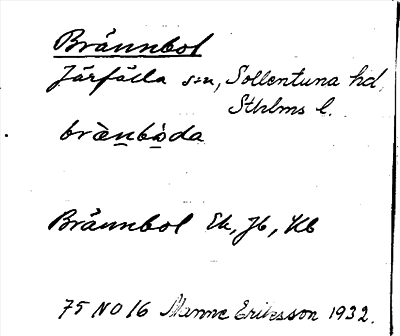 Brännbol
Järfälla sn, Sollentuna hd,
Sthlms l.
brὲnbòda
Brännbol Ek, Jb, Kb
75 NO 16 Manne Eriksson 1932.